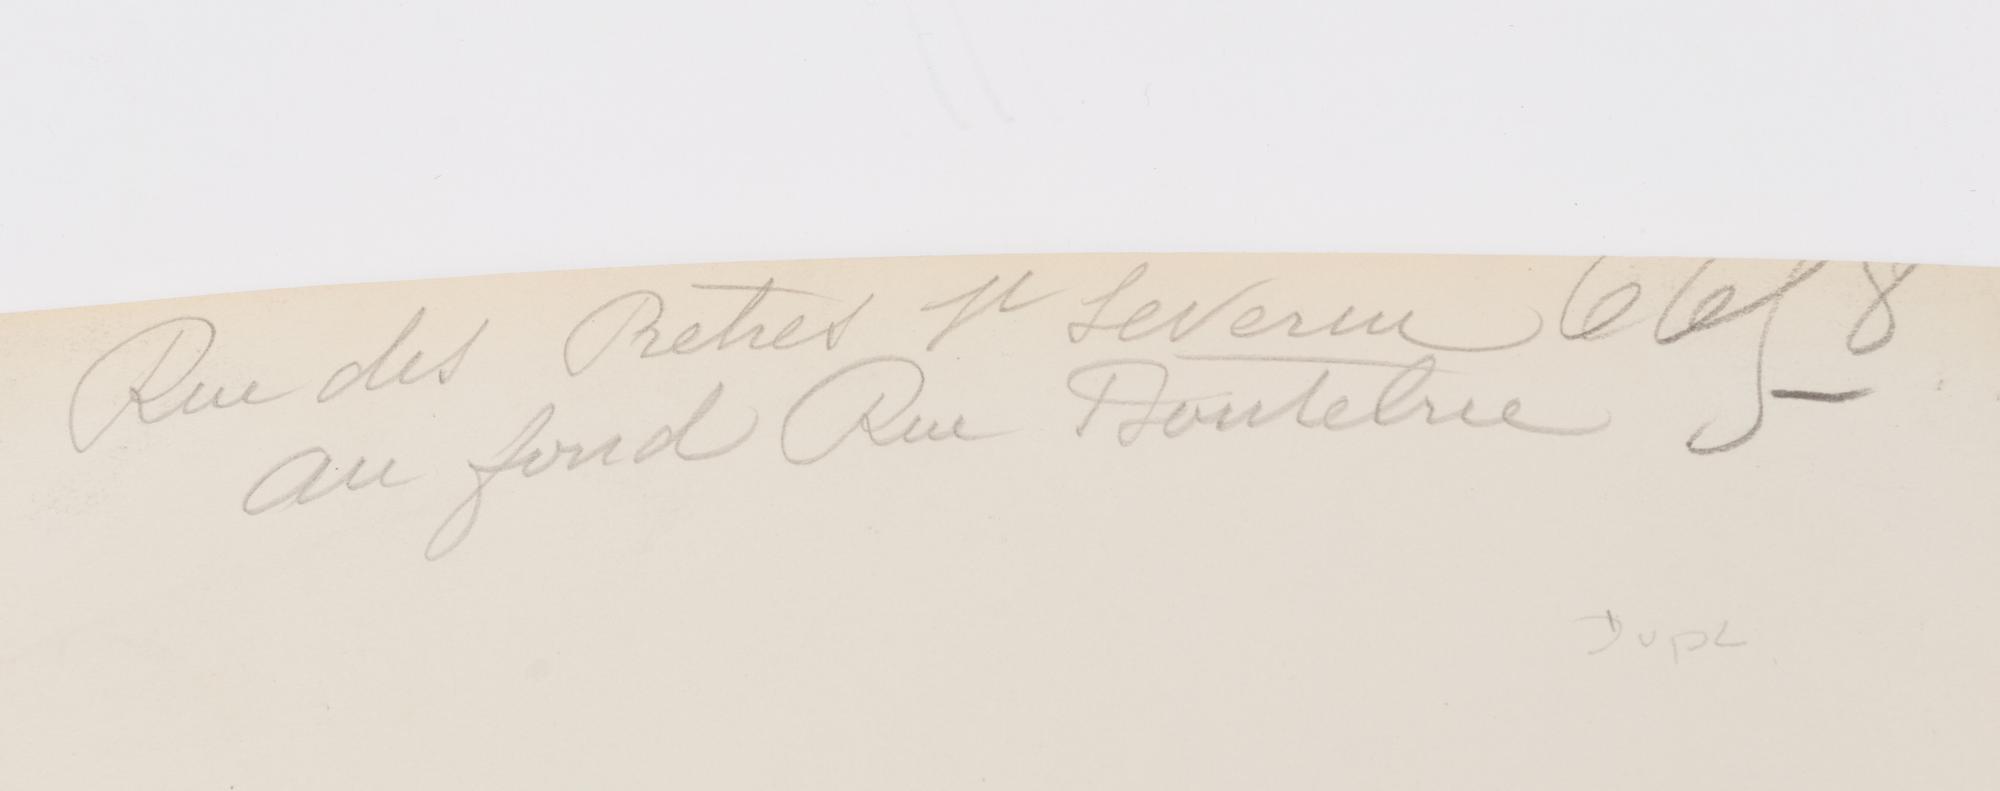 Rue des Pretres St Severin 6658
au fond Rue Boutebrie
Dupl